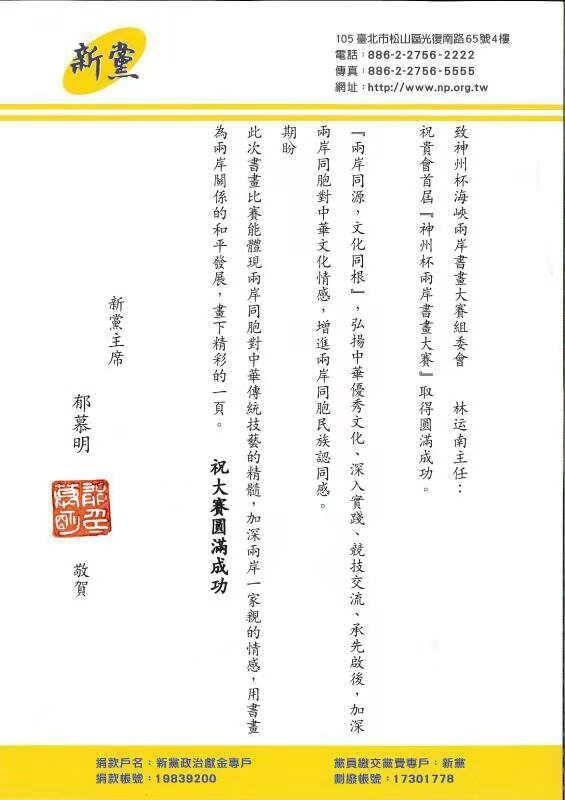 新黨
105 臺北市松山區光復南路65號4樓
電話：886-2-2756-2222
傳真：886-2-2756-5555
網址：http://www.np.org.tw
致神州杯海峽兩岸書畫大賽組委會 林运南主任：
祝貴會首屆『神州杯兩岸書畫大賽』取得圓滿成功。
『兩岸同源，文化同根』，弘揚中華優秀文化、深入實踐、競技交流、承先啟後，加深
兩岸同胞對中華文化情感，增進兩岸同胞民族認同感。
期盼
此次書畫比賽能體現兩岸同胞對中華傳統技藝的精髓，加深兩岸一家親的情感，用書畫
為兩岸關係的和平發展，畫下精彩的一頁。 祝大賽圓滿成功
新黨主席
郁慕明 敬賀
郁慕明印
捐款戶名：新黨政治獻金專戶
捐款帳號：19839200
黨員繳交黨費專戶：新黨
劃撥帳號：17301778